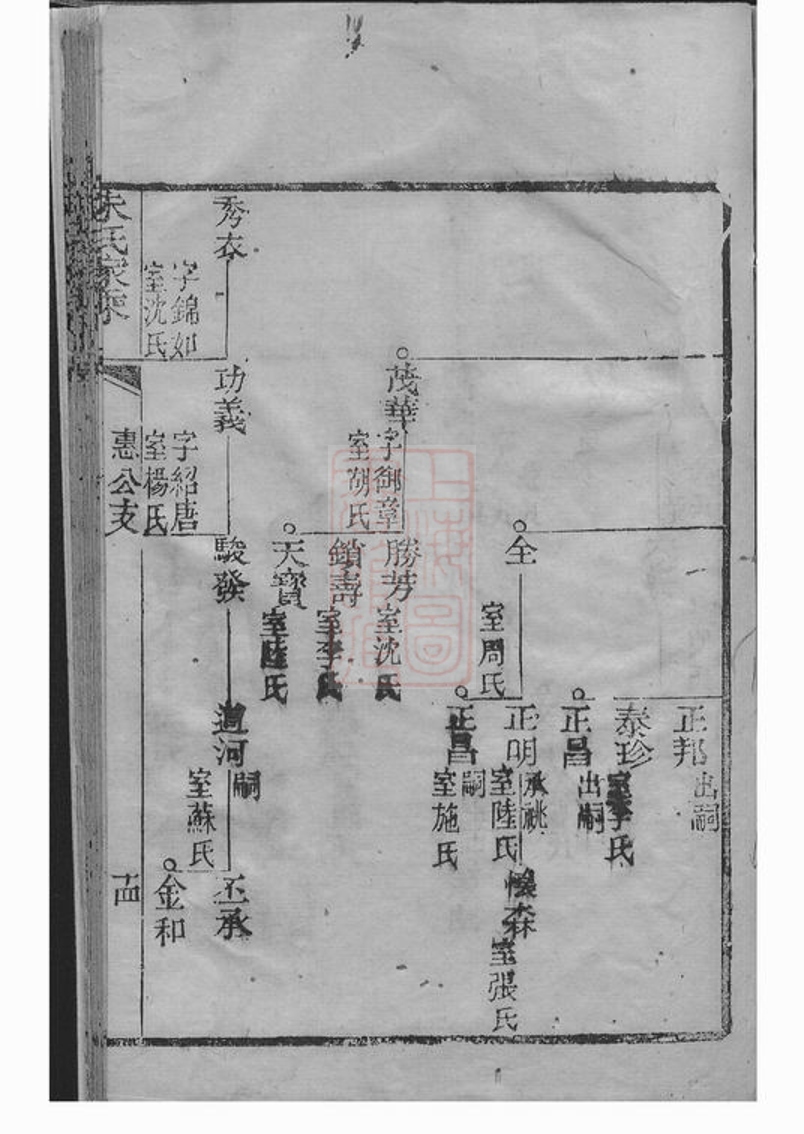 正邦
出嗣
泰珍
室李氏
正昌
出嗣
全
室周氏
正明
承祧
室陸氏
森
室張氏
正昌
嗣
室施氏
茂華
字御章
室胡氏
勝芳
室沈氏
鎖壽
室李氏
天寶
室陸氏
秀衣
字錦如
室沈氏
功義
字紹唐
室楊氏
駿發
道河
嗣
室蘇氏
丕承
金和
朱氏家乘
惠公支
十四
上海圖